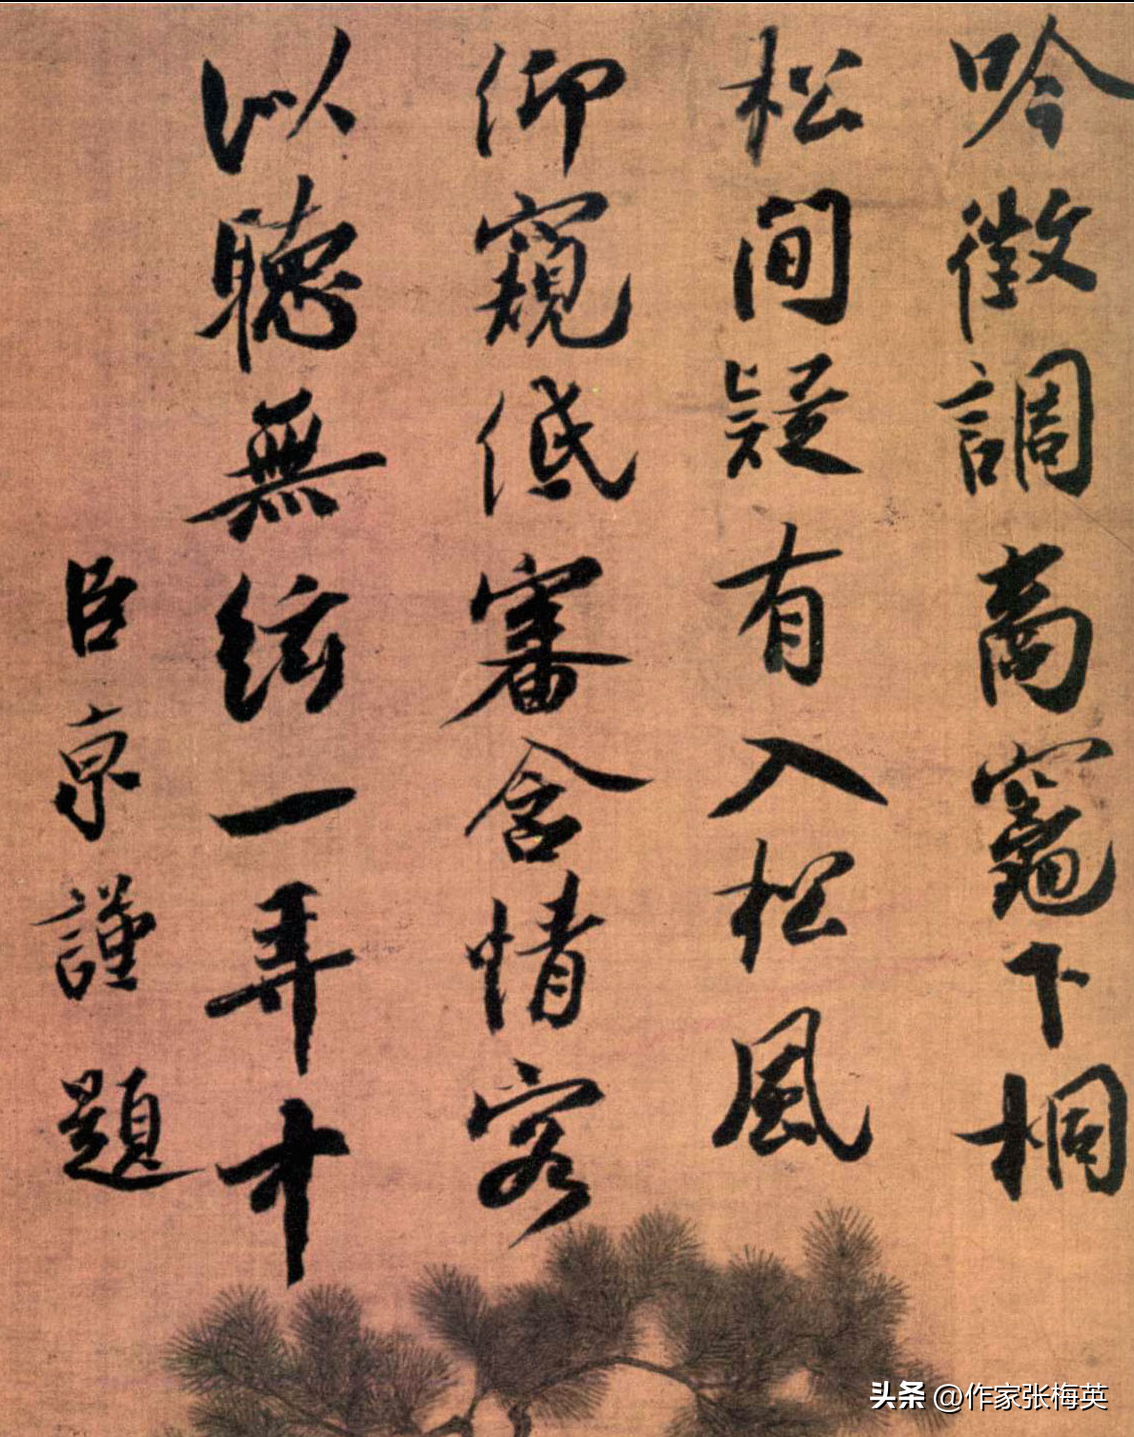 吟徵調商竈下桐
松間疑有入松風
仰窺低審含情客
以聽無絃一弄中
臣京謹題
头条 @作家张梅英